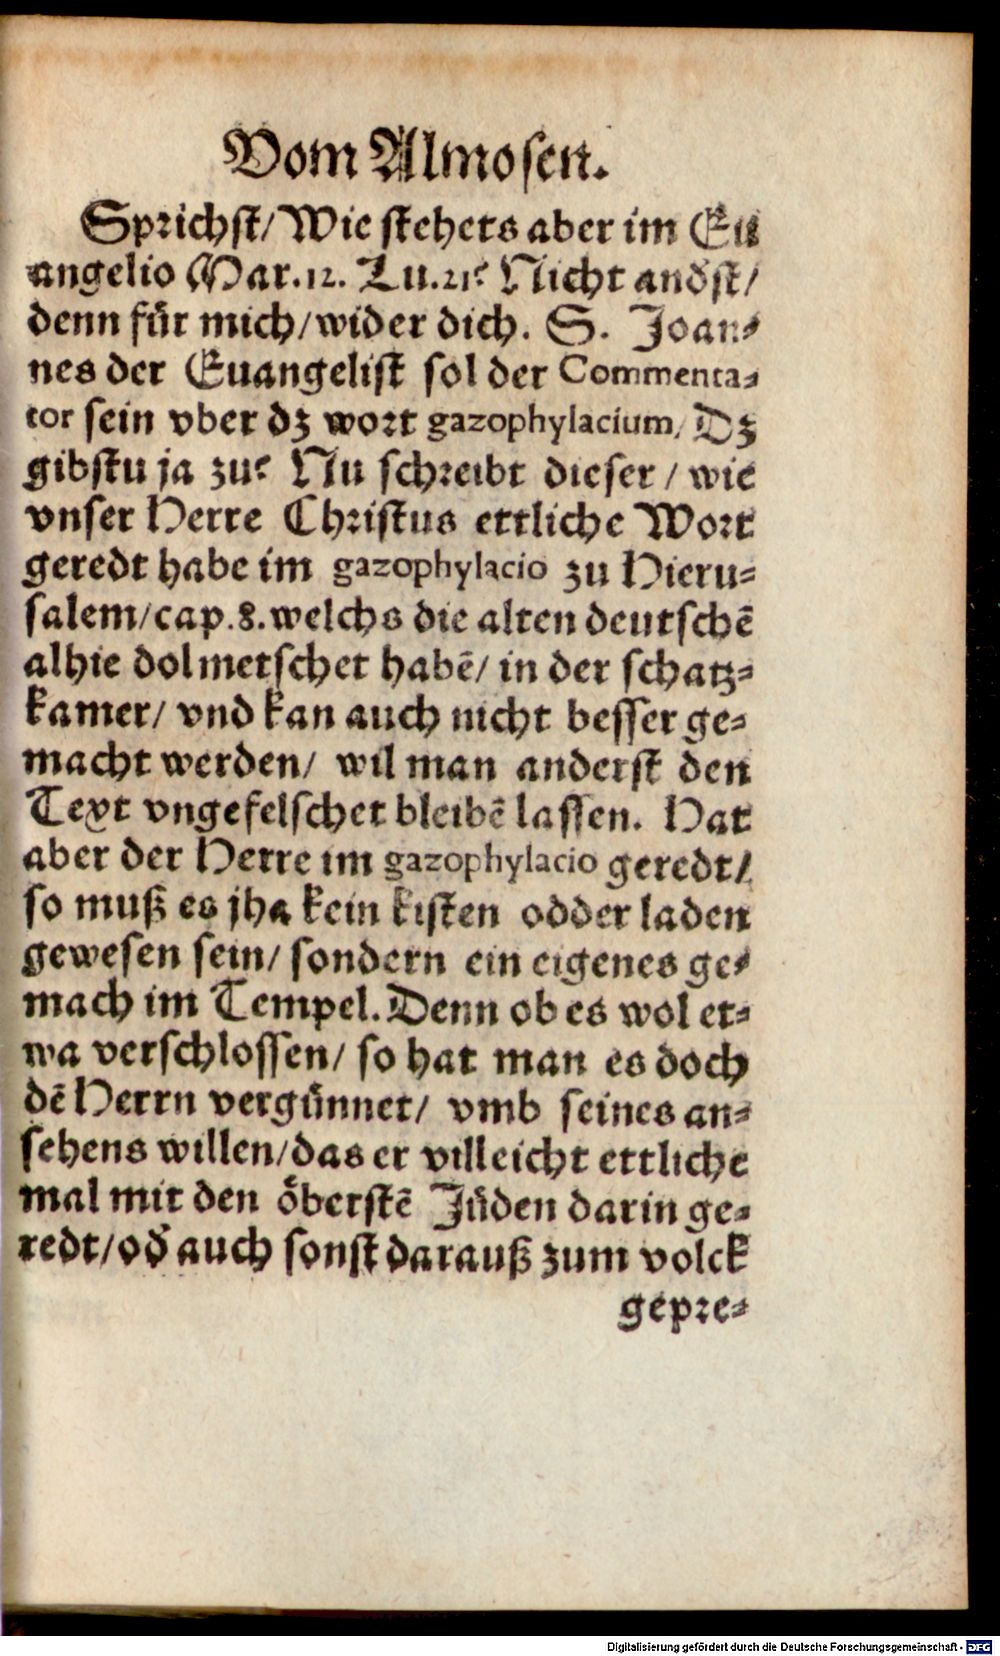 Vom Almosen.
Sprichst/ Wie stehets aber im Eu
angelio Mar.12. Lu.21? Nicht andst/
denn für mich/ wider dich. S. Joan⸗
nes der Euangelist sol der Commenta⸗
tor sein vber dz wort gazophylacium/ Dz
gibstu ja zu? Nu schreibt dieser / wie
vnser Herre Christus ettliche Wort
geredt habe im gazophylacio zu Hieru⸗
salem/ cap.8. welchs die alten deutschē
alhie dolmetschet habē/ in der schatz⸗
kamer/ vnd kan auch nicht besser ge⸗
macht werden/ wil man anderst den
Text vngefelschet bleibē lassen. Hat
aber der Herre im gazophylacio geredt/
so muß es jha kein kisten odder laden
gewesen sein/ sondern ein eigenes ge⸗
mach im Tempel. Denn ob es wol et⸗
wa verschlossen/ so hat man es doch
dē Herrn vergünnet/ vmb seines an⸗
sehens willen/ das er villeicht ettliche
mal mit den öberstē Jüden darin ge⸗
redt/ od̄ auch sonst darauß zum volck
gepre⸗
Digitalisierung gefördert durch die Deutsche Forschungsgemeinschaft - DFG